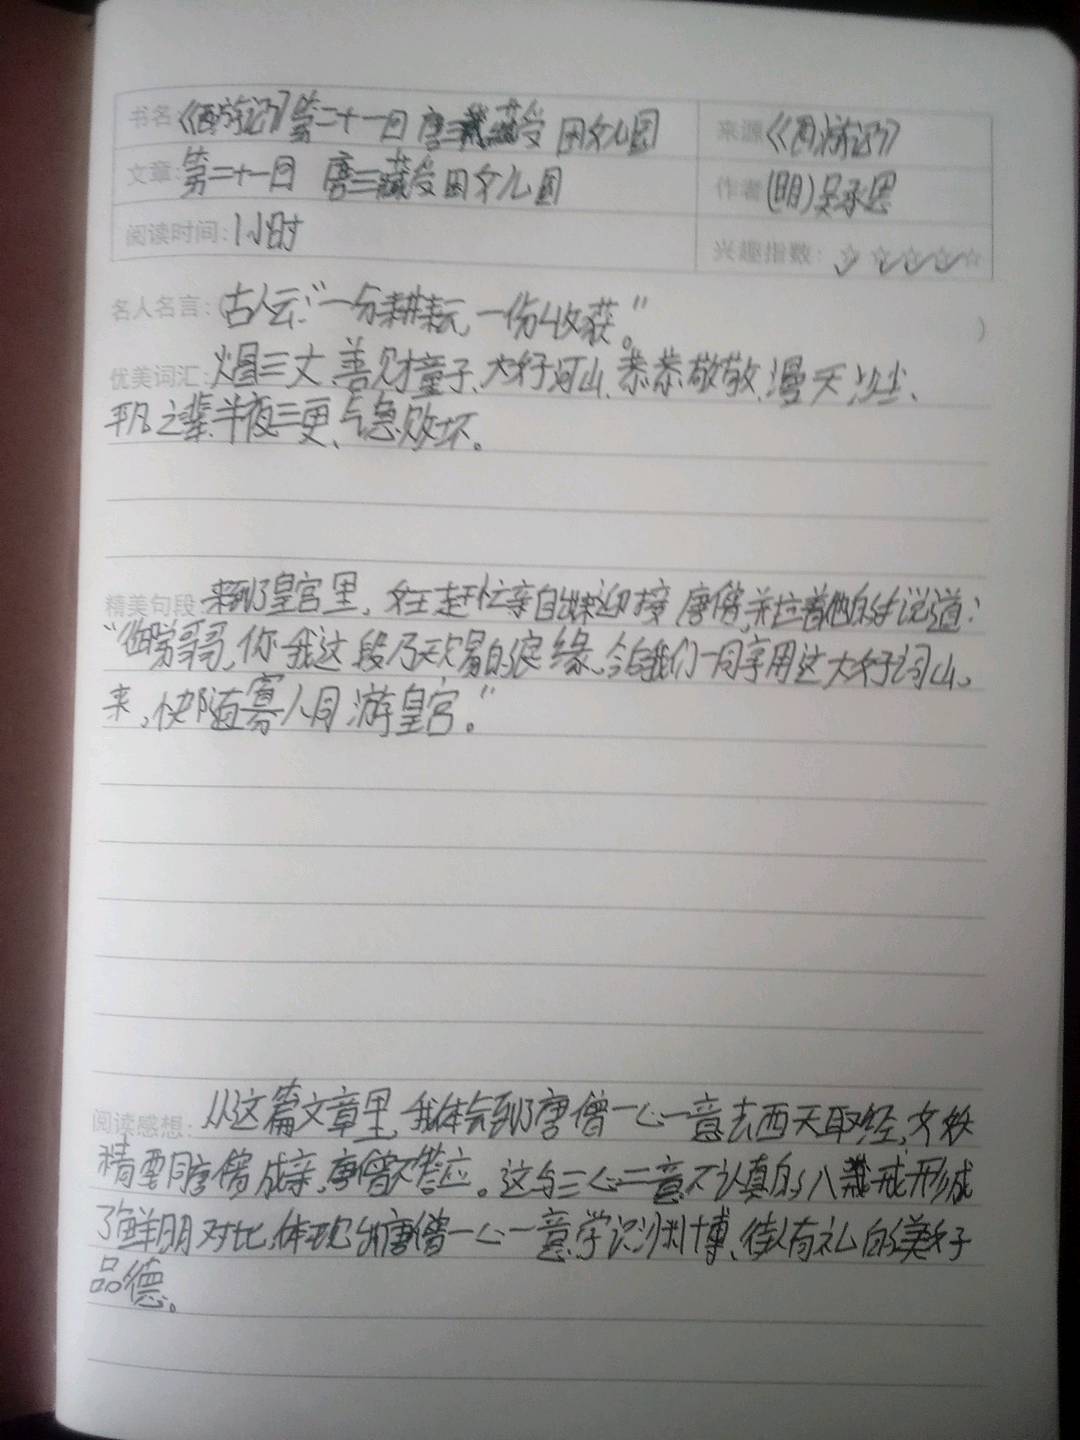 书名:《西游记》第二十一回 唐三藏受困女儿国
来源:《西游记》
文章:第二十一回 唐三藏受困女儿国
作者:(明)吴承恩
阅读时间:1小时
兴趣指数:☆☆☆☆☆
名人名言:(古人云:“一分耕耘,一份收获。” )
优美词汇:火冒三丈、善财童子、大好河山、恭恭敬敬、漫天沙尘、
平凡之辈、半夜三更、气急败坏。
精美句段:来到了皇宫里,女王赶忙亲自出来迎接唐僧,并拉着他的手说道:
“御弟哥哥,你我这段乃天赐的良缘,今后我们一同享用这大好河山。
来,快随寡人同游皇宫。”
阅读感想:从这篇文章里,我体会到了唐僧一心一意去西天取经,女妖
精要同唐僧成亲,唐僧不答应。这与三心二意不认真的八戒形成
了鲜明对比,体现出唐僧一心一意、学识渊博、待人有礼的美好
品德。